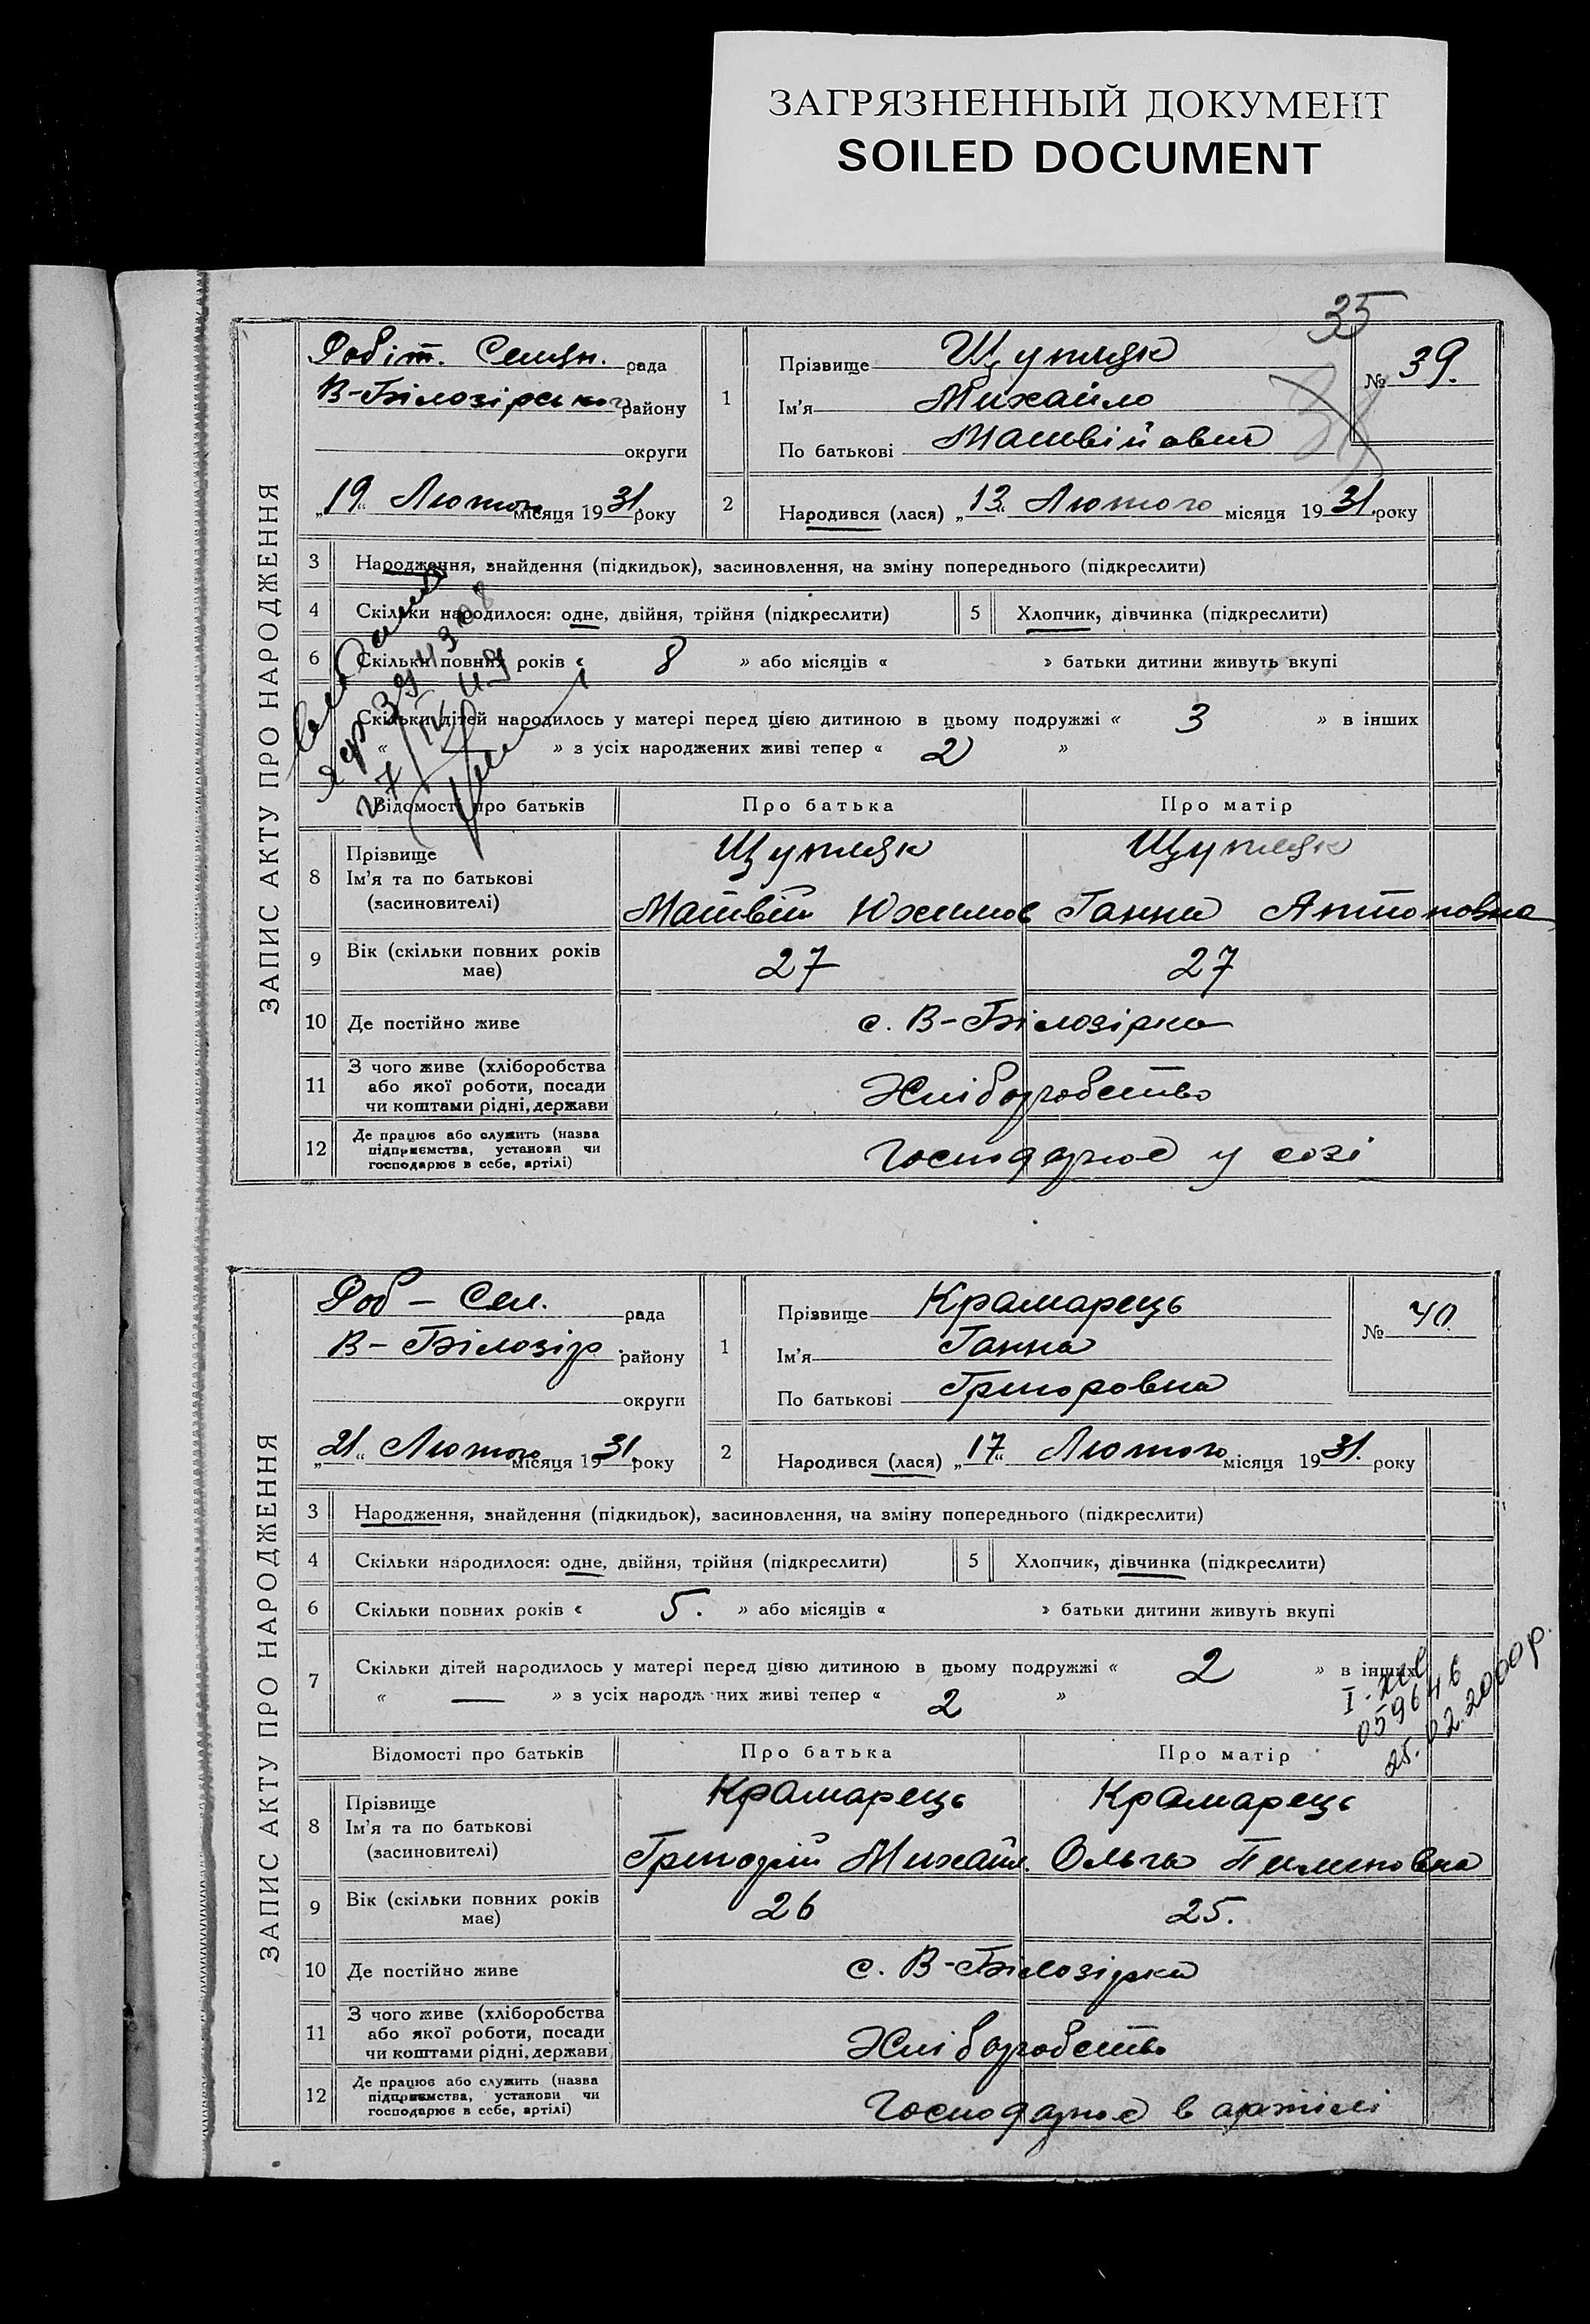 ЗАГРЯЗНЕННЫЙ ДОКУМЕНТ
SOILED DOCUMENT
35
ЗАПИС АКТУ ПРО НАРОДЖЕННЯ
Робіт. Селян. рада
В-Білозірського району
округи
„19“ Лютого місяця 1931 року
1 Прізвище Щупляк
Ім'я Михайло
По батькові Матвійович
№ 39.
2 Народився (лася) „13“ Лютого місяця 1931 року
3 Народження, знайдення (підкидьок), засиновлення, на зміну попереднього (підкреслити)
4 Скільки народилося: одне, двійня, трійня (підкреслити) 5 Хлопчик, дівчинка (підкреслити)
6 Скільки повних років « 8 » або місяців « » батьки дитини живуть вкупі
Скільки дітей народилось у матері перед цією дитиною в цьому подружжі « 3 » в інших
« » з усіх народжених живі тепер « 2 »
Відомості про батьків Про батька Про матір
8 Прізвище Ім'я та по батькові (засиновителі)
Щупляк Щупляк
Матвій Юхимов Ганна Антоновна
9 Вік (скільки повних років має) 27 27
10 Де постійно живе с. В-Білозірка
11 З чого живе (хліборобства або якої роботи, посади чи коштами рідні, держави Хліборобство
12 Де працює або служить (назва підприємства, установи чи господарює в себе, артілі) Господарює у созі
ЗАПИС АКТУ ПРО НАРОДЖЕННЯ
Роб - Сел. рада
В - Білозір. району
округи
„21“ Лютого місяця 1931 року
1 Прізвище Крамарець
Ім'я Ганна
По батькові Григоровна
№ 40.
2 Народився (лася) „17“ Лютого місяця 1931. року
3 Народження, знайдення (підкидьок), засиновлення, на зміну попереднього (підкреслити)
4 Скільки народилося: одне, двійня, трійня (підкреслити) 5 Хлопчик, дівчинка (підкреслити)
6 Скільки повних років « 5. » або місяців « » батьки дитини живуть вкупі
7 Скільки дітей народилось у матері перед цією дитиною в цьому подружжі « 2 » в інших
« — » з усіх народжених живі тепер « 2 »
059646
25.02.2000р.
Відомості про батьків Про батька Про матір
8 Прізвище Ім'я та по батькові (засиновителі)
Крамарець Крамарець
Григорій Михайл. Ольга Пилиповна
9 Вік (скільки повних років має) 26 25.
10 Де постійно живе с. В-Білозірка
11 З чого живе (хліборобства або якої роботи, посади чи коштами рідні, держави Хліборобство
12 Де працює або служить (назва підприємства, установи чи господарює в себе, артілі) Господарює в артілі